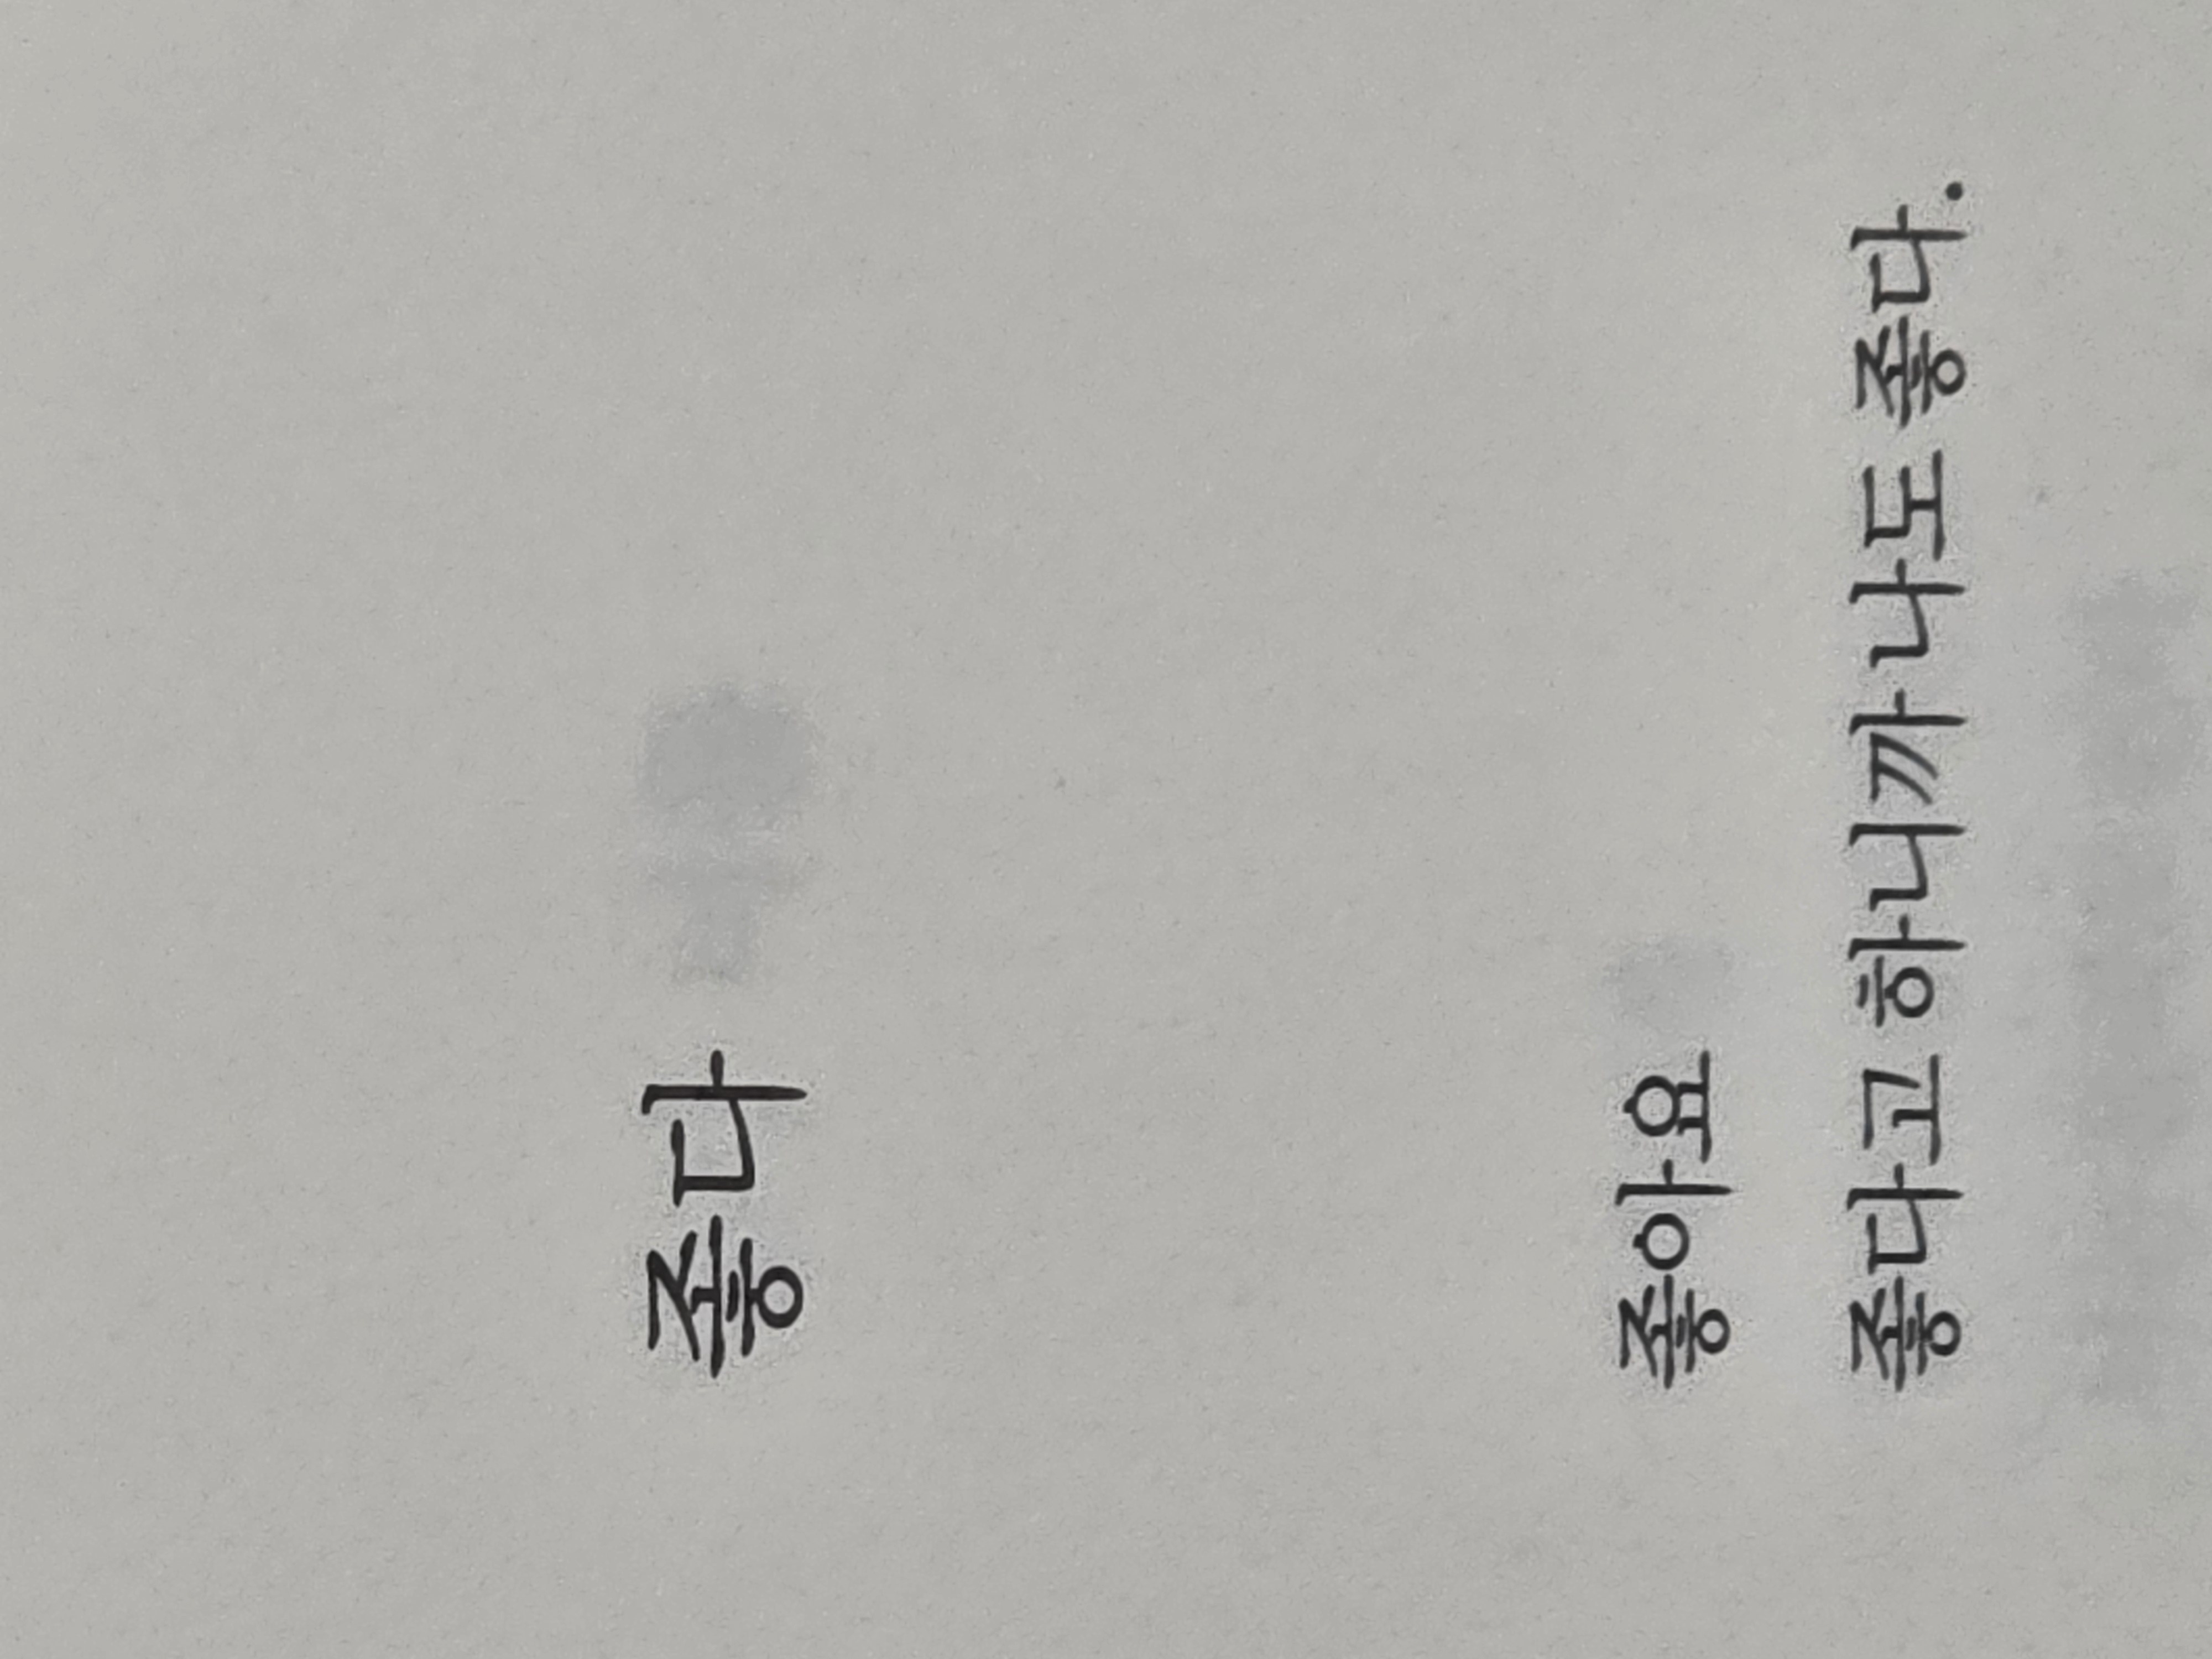 좋다
좋아요
좋다고 하니까 나도 좋다.